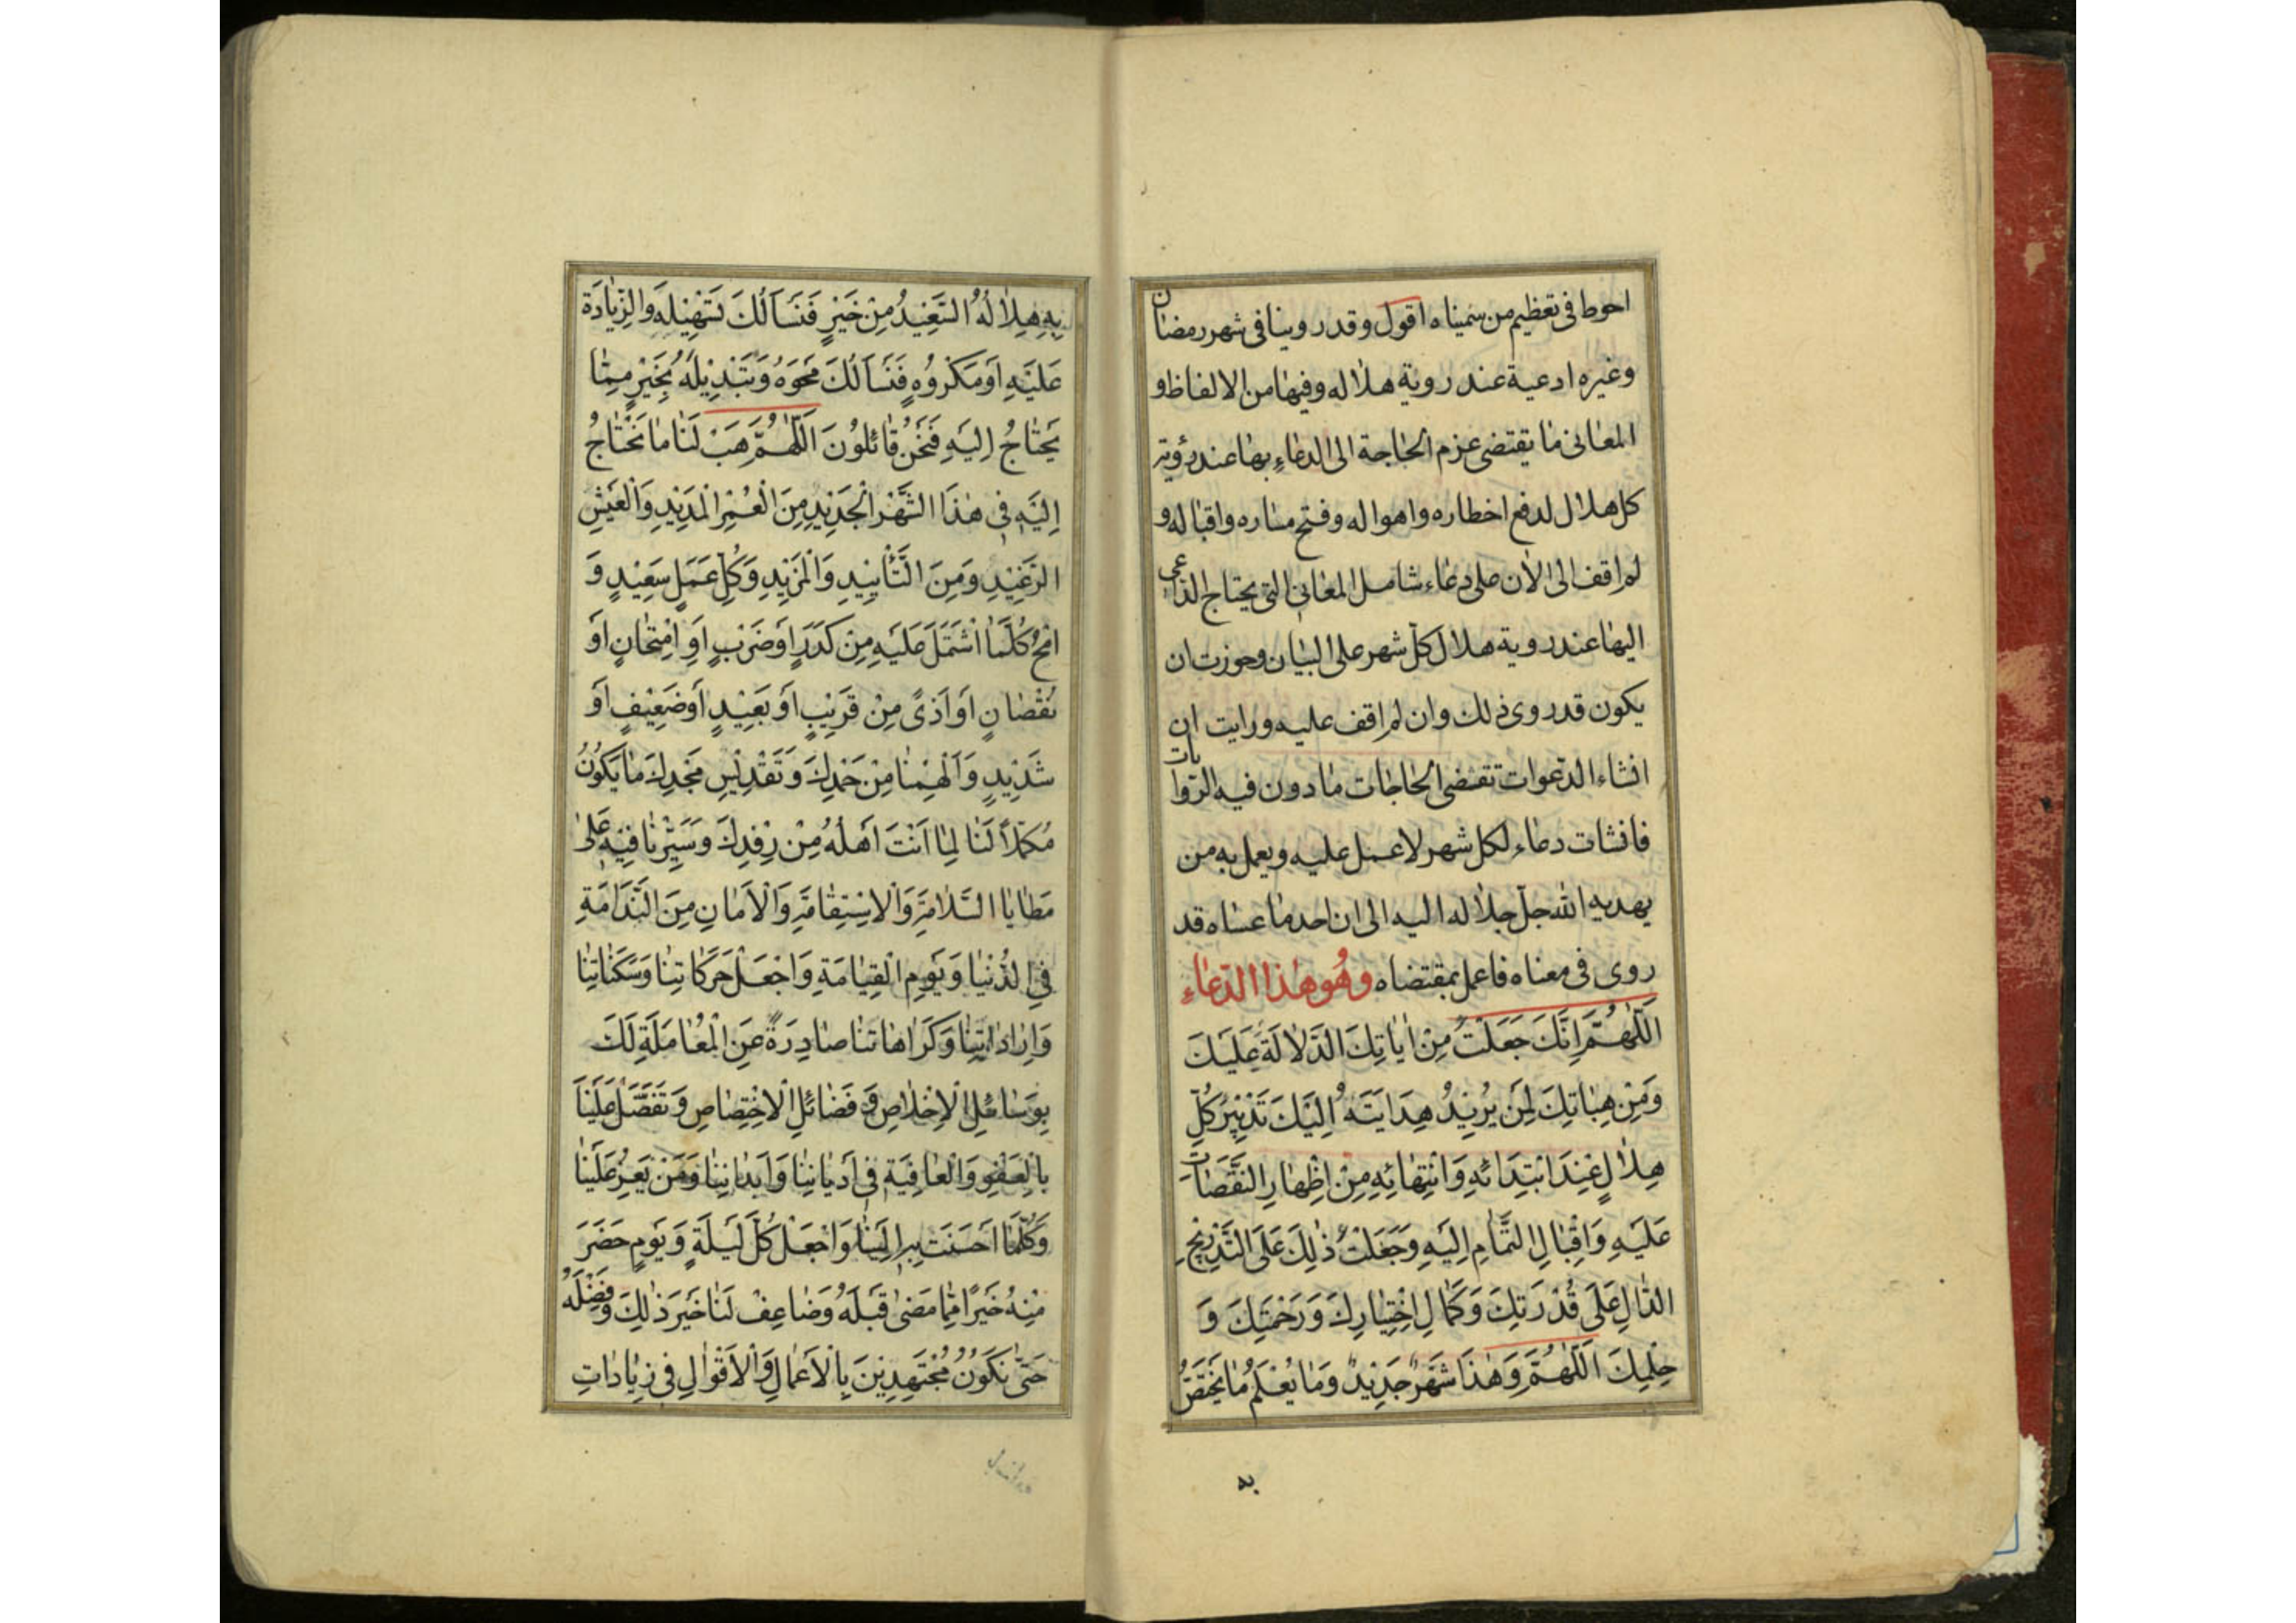 احوط فى تعظيم من سميناه اقول وقد روينا فى شهر رمضان
وغيره ادعية عند روية هلاله وفيها من الالفاظ و
المعانى ما يقتضى عزم الحاجة الى الدعاء بها عند رؤية
كل هلال لدفع اخطاره واهواله وفتح مساره واقباله و
لم اقف الى الان على دعاء شامل المعانى التى يحتاج الداعى
اليها عند روية هلال كل شهر على البيان وجوزت ان
يكون قد روى ذلك وان لم اقف عليه ورايت ان
انشاء الدعوات تقتضى الحاجات ما دون فيه الروايات
فانشات دعاء لكل شهر لاعمل عليه ويعمل به من
يهديه الله جل جلاله اليه الى ان احد ما عساه قد
روى فى معناه فاعمل بمقتضاه وهُوَ هٰذا الدّعاءِ
اَللّٰهُمَّ اِنَّكَ جَعَلْتَ مِنْ اٰيٰاتِكَ الدَّلٰالَةَ عَلَيْكَ
وَمِنْ هِبٰاتِكَ لِمَنْ يُرِيْدُ هِدٰايَتَهُ اِلَيْكَ تَدْبِيْرَ كُلِّ
هِلٰالٍ عِنْدَ ابْتِدٰائِهِ وَانْتِهٰائِهِ مِنْ اِظْهٰارِ النُّقْصٰانِ
عَلَيْهِ وَاِقْبٰالِ التَّمٰامِ اِلَيْهِ وَجَعَلْتَ ذٰلِكَ عَلَى التَّدْرِيْجِ
الدّٰالِ عَلَى قُدْرَتِكَ وَكَمٰالِ اِخْتِيٰارِكَ وَرَحْمَتِكَ وَ
حِلْمِكَ اَللّٰهُمَّ وَهٰذَا شَهْرٌ جَدِيْدٌ وَمٰا يُعْلَمُ مٰا يَخْتَصُّ
به
بِهِ هِلٰالُهُ السَّعِيْدُ مِنْ خَيْرٍ فَنَسْاَلُكَ تَسْهِيْلَهُ وَالزِّيٰادَةَ
عَلَيْهِ اَوْ مَكْرُوْهٍ فَنَسْاَلُكَ مَحْوَهُ وَتَبْدِيْلَهُ بِخَيْرٍ مِمّٰا
يَحْتٰاجُ اِلَيْهِ فَنَحْنُ قٰائِلُوْنَ اَللّٰهُمَّ هَبْ لَنٰا مٰا نَحْتٰاجُ
اِلَيْهِ فِي هٰذَا الشَّهْرِ الْجَدِيْدِ مِنَ الْعُمْرِ الْمَدِيْدِ وَالْعَيْشِ
الرَّغِيْدِ وَمِنَ التَّأْيِيْدِ وَالْمَزِيْدِ وَكُلِّ عَمَلٍ سَعِيْدٍ وَ
امْحُ كُلَّمٰا اشْتَمَلَ عَلَيْهِ مِنْ كَدَرٍ اَوْ ضَرْبٍ اَوِ امْتِحٰانٍ اَوْ
نُقْصٰانٍ اَوْ اَذىً مِنْ قَرِيْبٍ اَوْ بَعِيْدٍ اَوْ ضَعِيْفٍ اَوْ
شَدِيْدٍ وَاَلْهِمْنٰا مِنْ حَمْدِكَ وَتَقْدِيْسِ مَجْدِكَ مٰا يَكُوْنُ
مُكَمِّلاً لَنٰا لِمٰا اَنْتَ اَهْلُهُ مِنْ رِفْدِكَ وَسَيِّرْنٰا فِيْهِ عَلىٰ
مَطٰايَا السَّلٰامَةِ وَالْاِسْتِقٰامَةِ وَالْاَمٰانِ مِنَ النَّدٰامَةِ
فِي الدُّنْيٰا وَيَوْمِ الْقِيٰامَةِ وَاجْعَلْ حَرَكٰاتِنٰا وَسَكَنٰاتِنٰا
وَاِرٰادٰاتِنٰا وَكَرٰاهٰاتِنٰا صٰادِرَةً عَنِ الْمُعٰامَلَةِ لَكَ
بِوَسٰائِلِ الْاِخْلٰاصِ وَ فَضٰائِلِ الْاِخْتِصٰاصِ وَتَفَضَّلْ عَلَيْنٰا
بِالْعَفْوِ وَالْعٰافِيَةِ فِي اَدْيٰانِنٰا وَاَبْدٰانِنٰا وَمَنْ يَعِزُّ عَلَيْنٰا
وَكُلَّمٰا اَحْسَنْتَ بِهِ اِلَيْنٰا وَاجْعَلْ كُلَّ لَيْلَةٍ وَيَوْمٍ حَضَرَ
مِنْهُ خَيْرًا مِمّٰا مَضىٰ قَبْلَهُ وَضٰاعِفْ لَنٰا خَيْرَ ذٰلِكَ وَفَضْلَهُ
حَتّٰى نَكُوْنَ مُجْتَهِدِيْنَ بِالْاَعْمٰالِ وَالْاَقْوٰالِ فِي زِيٰادٰاتِ